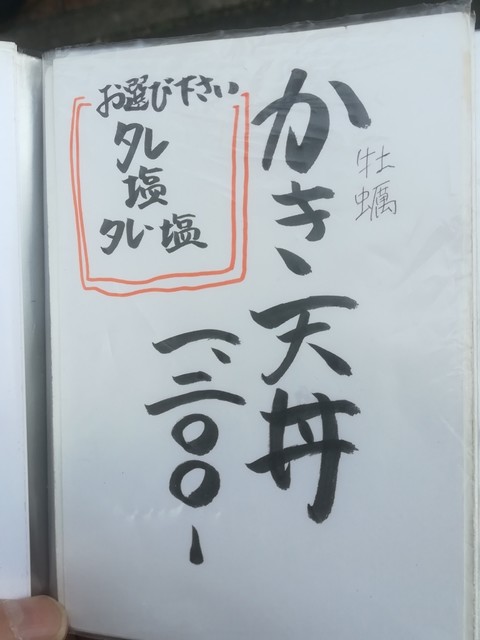 かき天丼
牡蠣
お選び下さい
タレ
塩
タレ・塩
一、二〇〇-